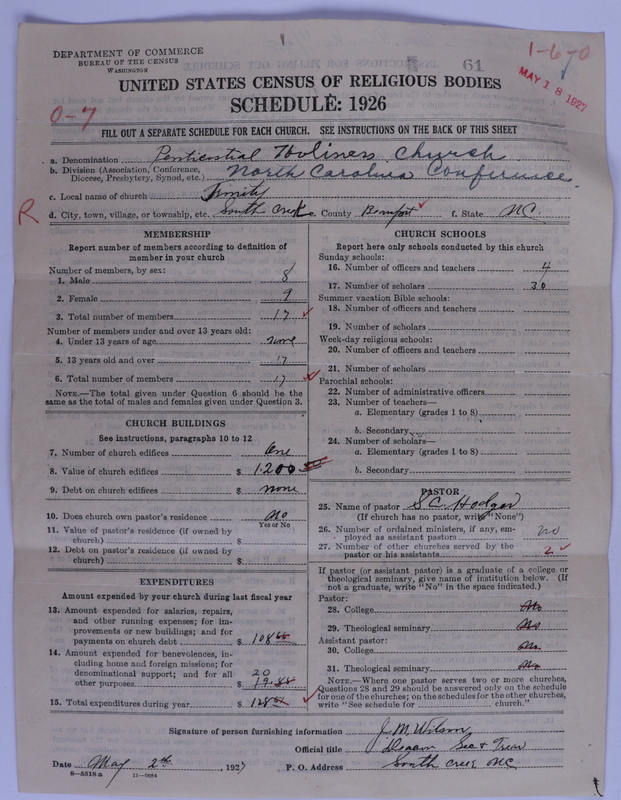 DEPARTMENT OF COMMERCE
BUREAU OF THE CENSUS
WASHINGTON
61
1-6-0
MAY 18 1927
UNITED STATES CENSUS OF RELIGIOUS BODIES
SCHEDULE: 1926
0-7
FILL OUT A SEPARATE SCHEDULE FOR EACH CHURCH. SEE INSTRUCTIONS ON THE BACK OF THIS SHEET
a. Denomination Holiness Church
b. Division (Association, Conference, Diocese, Presbytery, Synod, etc.) North Carolina Conference
c. Local name of church Trinity
R
d. City, town, village, or township, etc. South Creek e. County Beaufort f. State NC
MEMBERSHIP
Report number of members according to definition of
member in your church
Number of members, by sex:
1. Male 8
2. Female 9
3. Total number of members 17
Number of members under and over 13 years old:
4. Under 13 years of age none
5. 13 years old and over 17
6. Total number of members 17
NOTE.—The total given under Question 6 should be
same as the total of males and females given under Question 3.
CHURCH BUILDINGS
See instructions, paragraphs 10 to 12
7. Number of church edifices One
8. Value of church edifices $ 1200
9. Debt on church edifices $ none
10. Does church own pastor's residence No
Yes or No
11. Value of pastor's residence (if owned by
church) $
12. Debt on pastor's residence (if owned by
church) $
EXPENDITURES
Amount expended by your church during last fiscal year
13. Amount expended for salaries, repairs,
and other running expenses; for im-
provements or new buildings; and for
payments on church debt $ 108
14. Amount expended for benevolences, in-
cluding home and foreign missions; for
denominational support; and for all 20
other purposes $
15. Total expenditures during year $ 128
CHURCH SCHOOLS
Report here only schools conducted by this church
Sunday schools:
16. Number of officers and teachers 4
17. Number of scholars 30
Summer vacation Bible schools:
18. Number of officers and teachers
19. Number of scholars
Week-day religious schools:
20. Number of officers and teachers
21. Number of scholars
Parochial schools:
22. Number of administrative officers
23. Number of teachers—
a. Elementary (grades 1 to 8)
b. Secondary
24. Number of scholars—
a. Elementary (grades 1 to 8)
b. Secondary
PASTOR
25. Name of pastor S C
(If church has no pastor, write "None")
26. Number of ordained ministers, if any, em-
ployed as assistant pastors no
27. Number of other churches served by the
pastor or his assistants 2
If pastor (or assistant pastor) is a graduate of a college or
theological seminary, give name of institution below. (If
not a graduate, write "No" in the space indicated.)
Pastor:
28. College No
29. Theological seminary No
Assistant pastor:
30. College No
31. Theological seminary No
NOTE.—Where one pastor serves two or more churches,
Questions 28 and 29 should be answered only on the schedule
for one of the churches; on the schedules for the other churches,
write "See schedule for church."
Signature of person furnishing information J. M. Wilson
Official title Deacon Sec & Treas
Date May 2nd, 1927 P. O. Address South Creek NC
8-5518 a 11-9084